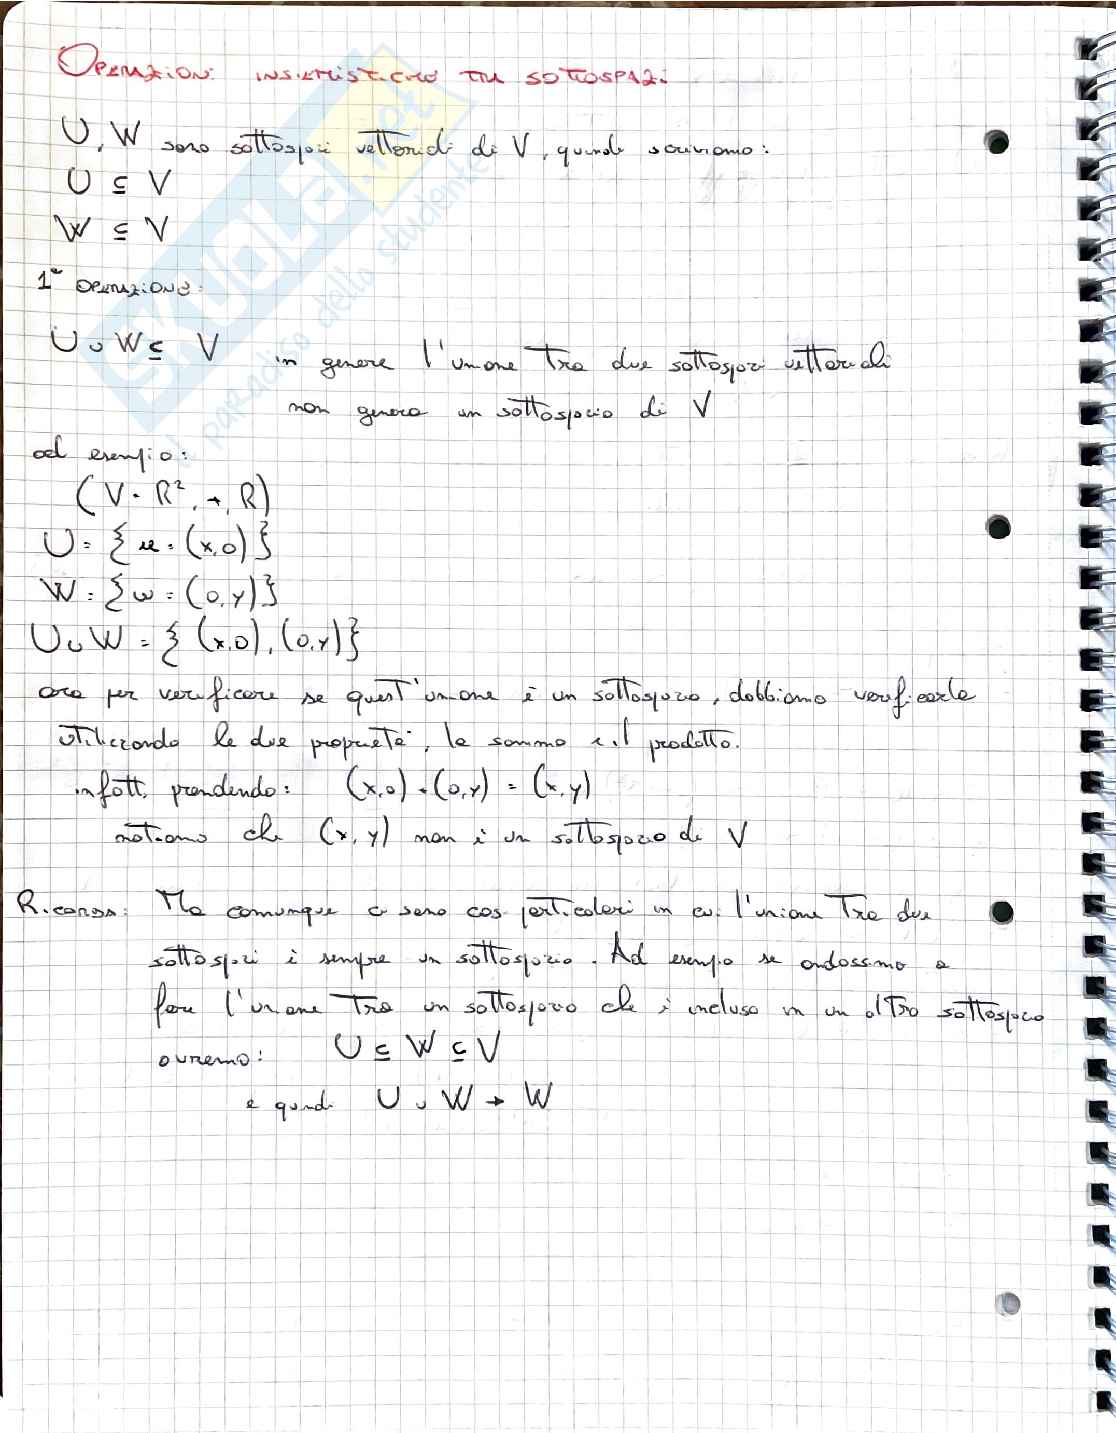 OPERAZIONI INSIEMISTICHE TRA SOTTOSPAZI
U, W sono sottospazi vettoriali di V, quindi scriviamo:
U ⊆ V
W ⊆ V
1ª OPERAZIONE:
U ∪ W ⊆ V in genere l'unione tra due sottospazi vettoriali
non genera un sottospazio di V
ad esempio:
(V = R², +, R)
U = { u = (x,0) }
W = { w = (0,y) }
U ∪ W = { (x,0), (0,y) }
ora per verificare se quest'unione è un sottospazio, dobbiamo verificarla
utilizzando le due proprietà, la somma e il prodotto.
infatti prendendo: (x,0) + (0,y) = (x,y)
notiamo che (x,y) non è un sottospazio di V
RICORDA: Ma comunque ci sono casi particolari in cui l'unione tra due
sottospazi è sempre un sottospazio. Ad esempio se andassimo a
fare l'unione tra un sottospazio che è incluso in un altro sottospazio
avremo: U ⊆ W ⊆ V
e quindi U ∪ W → W
SKUOLA.net
il paradiso dello studente